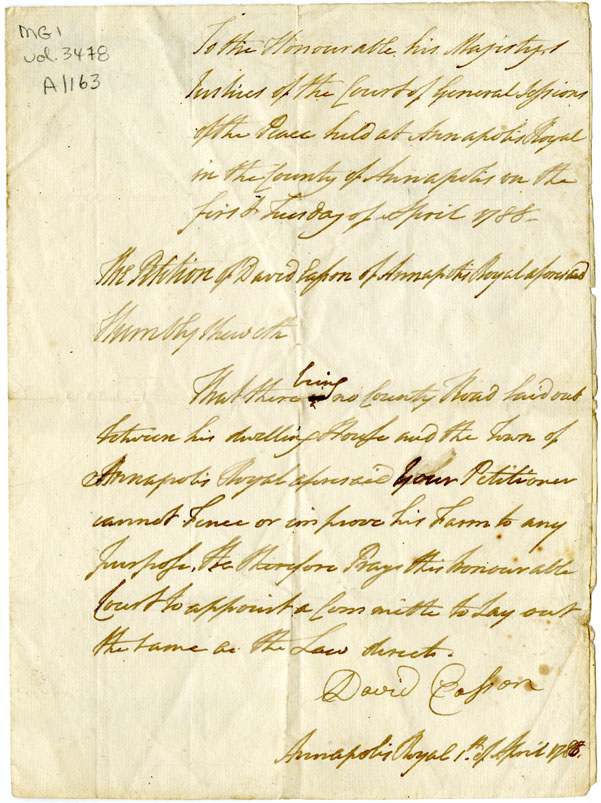 MG 1
vol. 3478
A/163
To the Honourable his Majestys
Justices of the Court of General Sessions
of the Peace held at Annapolis Royal
in the County of Annapolis on the
first Tuesday of April 1788-
The Petition of David Easson of Annapolis Royal aforesaid
Humbly Sheweth
being
That there no County Road laid out
between his dwelling House and the Town of
Annapolis Royal aforesaid Your Petitioner
cannot Fence or improve his Farm to any
purpose. He therefore Prays this honourable
Court to appoint a Committe to Lay out
the same as the Law directs.
David Easson
Annapolis Royal 1st. of April 1788.